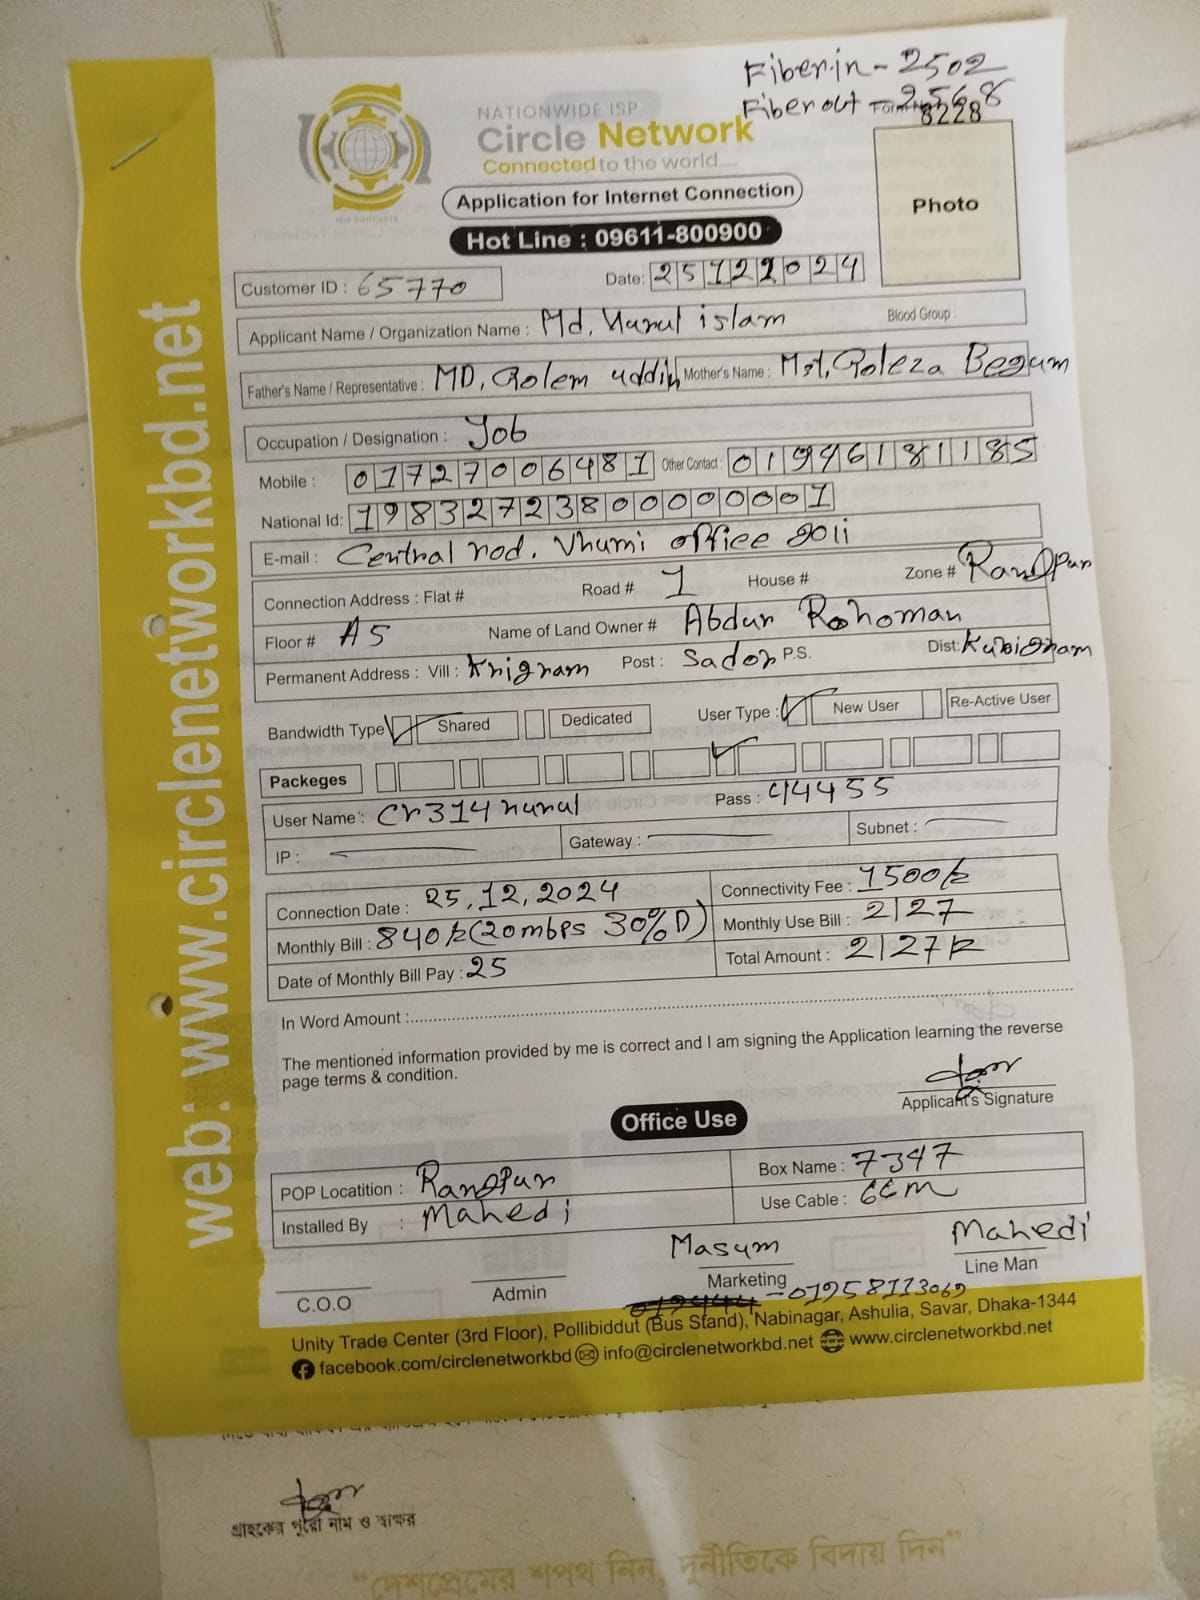 Fiber in - 2502
Fiber out - 2568
8228
NATIONWIDE ISP
Circle Network
Connected to the world....
Application for Internet Connection
Hot Line : 09611-800900
Photo
Customer ID : 65770
Date: 25122024
Applicant Name / Organization Name : Md, Nurul islam
Blood Group :
Father's Name / Representative : MD, Golem uddin Mother's Name : Mst, Goleza Begum
Occupation / Designation : Job
Mobile : 01727006481 Other Contact : 01946181185
National Id: 19832723800000001
E-mail : Central rod. Vhumi office goli
Connection Address : Flat # Road # 1 House # Zone # Rangpur
Floor # A5 Name of Land Owner # Abdur Rohoman
Permanent Address : Vill : Krigram Post : Sador P.S. Dist: Kurigram
Bandwidth Type Shared Dedicated User Type : New User Re-Active User
Packeges
User Name : cr314nurul Pass : 44455
IP : Gateway : Subnet :
Connection Date : 25,12,2024 Connectivity Fee : 1500/=
Monthly Bill : 840/=(20mbps 30%D) Monthly Use Bill : 2127
Date of Monthly Bill Pay : 25 Total Amount : 2127/=
In Word Amount :
The mentioned information provided by me is correct and I am signing the Application learning the reverse
page terms & condition.
Applicant's Signature
Office Use
POP Locatition : Rangpur Box Name : 7347
Installed By : Mahedi Use Cable : 66m
Masum Mahedi
C.O.O Admin Marketing Line Man
-01958113069
Unity Trade Center (3rd Floor), Pollibiddut (Bus Stand), Nabinagar, Ashulia, Savar, Dhaka-1344
facebook.com/circlenetworkbd info@circlenetworkbd.net www.circlenetworkbd.net
web: www.circlenetworkbd.net
গ্রাহকের পুরো নাম ও স্বাক্ষর
"দেশপ্রেমের শপথ নিন, দুর্নীতিকে বিদায় দিন"